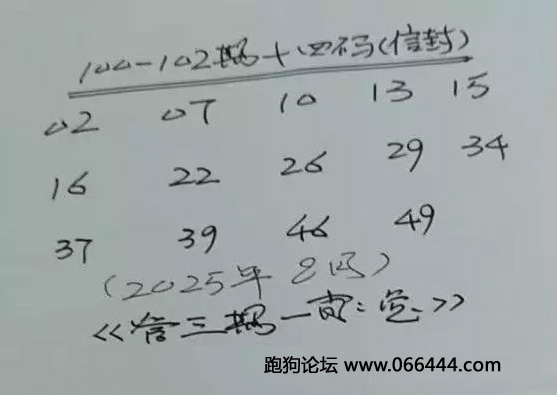 100-102期十四码(信封)
02 07 10 13 15
16 22 26 29 34
37 39 46 49
(2025年8码)
三期一
跑狗论坛 www.066444.com